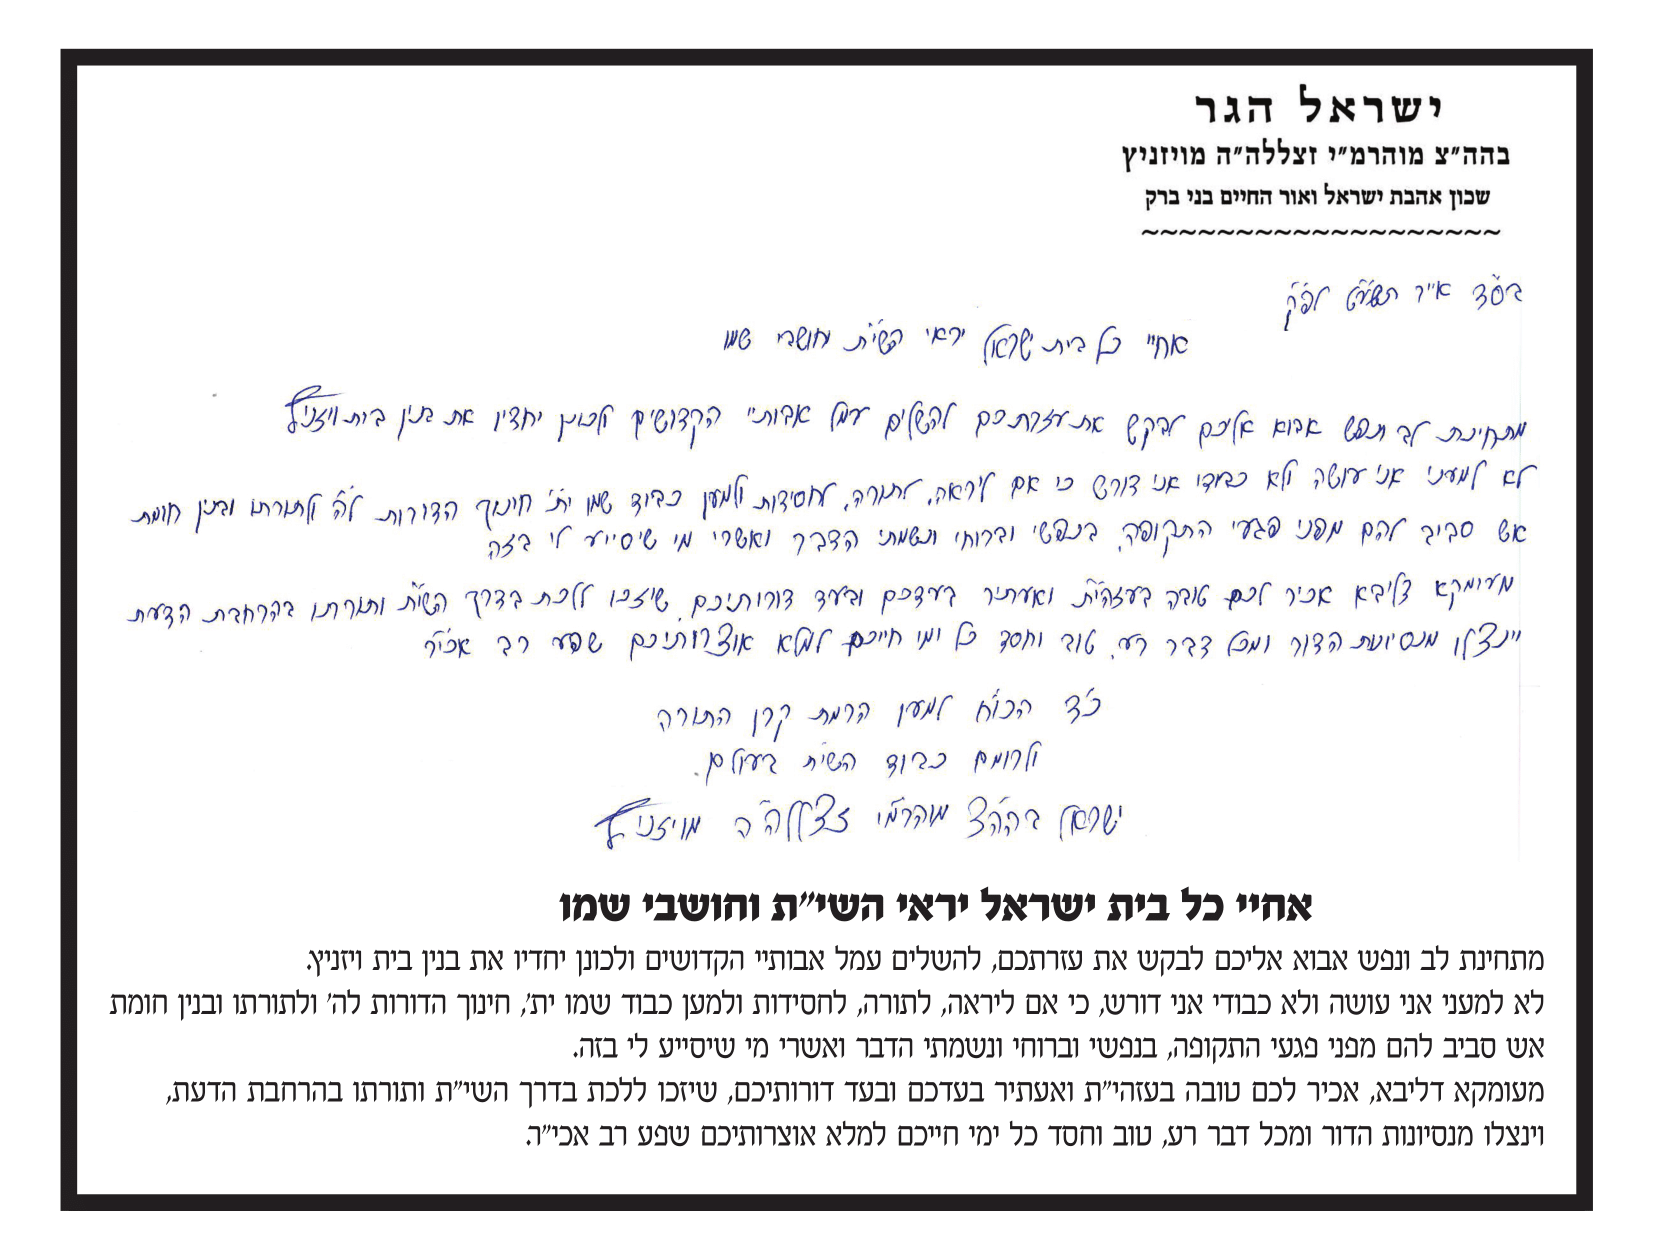 ישראל הגר
בהה״צ מוהרמ״י זצללה״ה מויזניץ
שכון אהבת ישראל ואור החיים בני ברק
~~~~~~~~~~~~~~~~~~~
בס״ד אייר תשע״ט לפ״ק
אחיי כל בית ישראל יראי השי״ת וחושבי שמו
מתחינת לב ונפש אבוא אליכם לבקש את עזרתכם להשלים עמל אבותיי הקדושים ולכונן יחדיו את בנין בית ויזניץ
לא למעני אני עושה ולא כבודי אני דורש כי אם ליראה, לתורה, לחסידות ולמען כבוד שמו ית׳ חינוך הדורות לה׳ ולתורתו ובנין חומת
אש סביב להם מפני פגעי התקופה, בנפשי וברוחי ונשמתי הדבר ואשרי מי שיסייע לי בזה
מעומקא דליבא אכיר לכם טובה בעזהי״ת ואעתיר בעדכם ובעד דורותיכם, שיזכו ללכת בדרך השי״ת ותורתו בהרחבת הדעת
וינצלו מנסיונות הדור ומכל דבר רע, טוב וחסד כל ימי חייכם למלא אוצרותיכם שפע רב אכי״ר
כ״ד הכו״ח למען הרמת קרן התורה
ולרומם כבוד השי״ת בעולם.
ישראל בהה״צ מוהרמ״י זצללה״ה מויזניץ
אחיי כל בית ישראל יראי השי״ת וחושבי שמו
מתחינת לב ונפש אבוא אליכם לבקש את עזרתכם, להשלים עמל אבותיי הקדושים ולכונן יחדיו את בנין בית ויזניץ.
לא למעני אני עושה ולא כבודי אני דורש, כי אם ליראה, לתורה, לחסידות ולמען כבוד שמו ית׳, חינוך הדורות לה׳ ולתורתו ובנין חומת
אש סביב להם מפני פגעי התקופה, בנפשי וברוחי ונשמתי הדבר ואשרי מי שיסייע לי בזה.
מעומקא דליבא, אכיר לכם טובה בעזהי״ת ואעתיר בעדכם ובעד דורותיכם, שיזכו ללכת בדרך השי״ת ותורתו בהרחבת הדעת,
וינצלו מנסיונות הדור ומכל דבר רע, טוב וחסד כל ימי חייכם למלא אוצרותיכם שפע רב אכי״ר.